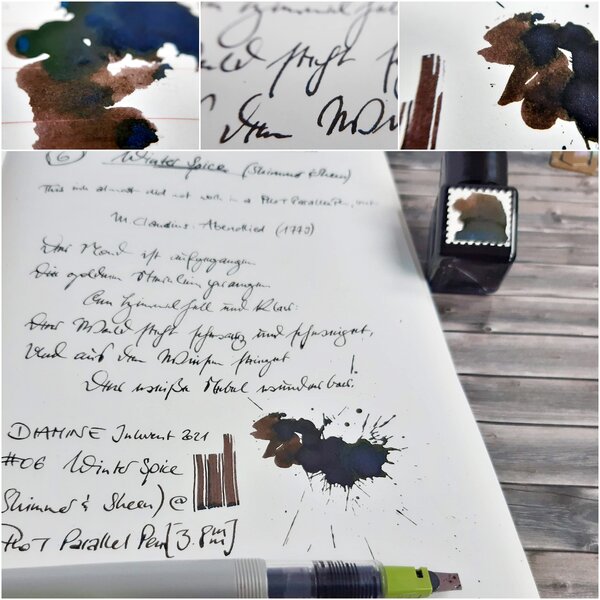 Himmel hell
Wald steht
den Wies
(6) Winter Spice (Shimmer & Sheen)
This ink almost did not work in a Pilot Parallel Pen,
M. Claudius: Abendlied (1779)
Der Mond ist aufgegangen
Die goldnen Sternlein prangen
Am Himmel hell und klar:
Der Wald steht schwarz und schweiget,
Und aus den Wiesen steiget
Der weiße Nebel wunderbar.
DIAMINE Inkvent 2021
#06 Winter Spice
Shimmer & Sheen) @
Pilot Parallel Pen [3.8mm]